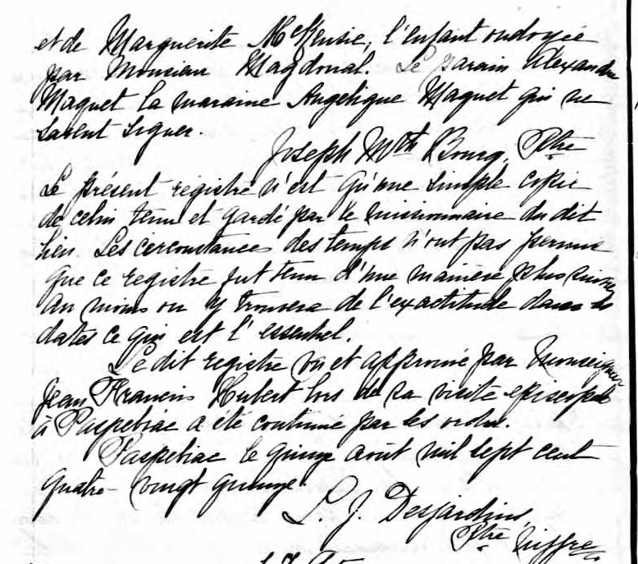 et de Marguerite McKensie, l'enfant ondoyée
par Monsieur Magdonal. Le parain Alexandre
Maquet la maraine Angelique Maquet qui ne
savent signer.
Joseph Mth Bourg, Ptre
Le présent registre n'est qu'une simple copie
de celui tenu et gardé par le missionnaire du dit
lieu. Les circonstances des temps n'ont pas permis
que ce registre fut tenu d'une manière plus suivie
Au moins on y trouvera de l'exactitude dans les
dates ce qui est l'essentiel.
Le dit registre vu et approuvé par Monseigneur
Jean Francois Hubert lors de sa visite épiscopale
à Paspebiac a été continué par ses ordres.
Paspebiac le quinze août mil sept cent
quatre-vingt quinze.
L. J. Desjardins,
Ptre